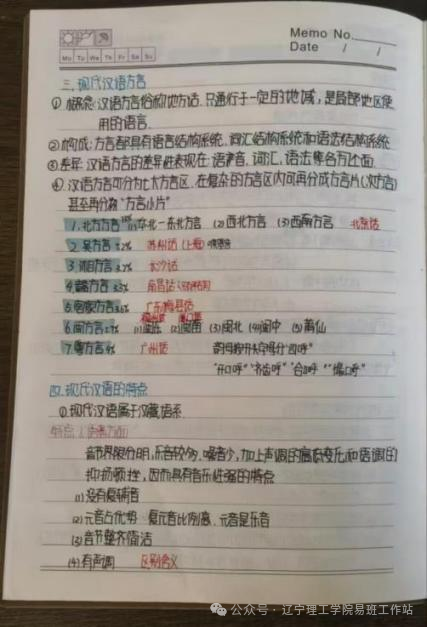 Memo No.
Date / /
Mo Tu We Th Fr Sa Su
三.现代汉语方言
①概念:汉语方言俗称地方话.只通行于一定的地域,是局部地区使
用的语言.
②构成:方言都具有语音结构系统.词汇结构系统和语法结构系统
③差异:汉语方言的差异性表现在:语音.词汇.语法等各方面.
④.汉语方言可分为七大方言区.在复杂的方言区内可再分成方言片(次方言)
甚至再分为"方言小片"
1.北方方言 华北—东北方言 (2)西北方言 (3)西南方言 北京话
2.吴方言 苏州话(上海)
3.湘方言 长沙话
4.赣方言 南昌话
5.客家方言 广东梅县话
6.闽方言 (1)闽东 (2)闽南 (3)闽北 (4)闽中 (5)莆仙
7.粤方言 广州话 "四呼"
"开口呼""齐齿呼""合口呼""撮口呼"
四.现代汉语的特点
①.现代汉语属于汉藏语系.
音节界限分明,乐音较多,噪音少,加上声调的高低变化和语调的
抑扬顿挫,因而具有音乐性强的特点
(1)没有复辅音
(2)元音占优势 复元音比例高.元音是乐音
(3)音节整齐简洁
(4)有声调 区别意义
公众号·辽宁理工学院易班工作站